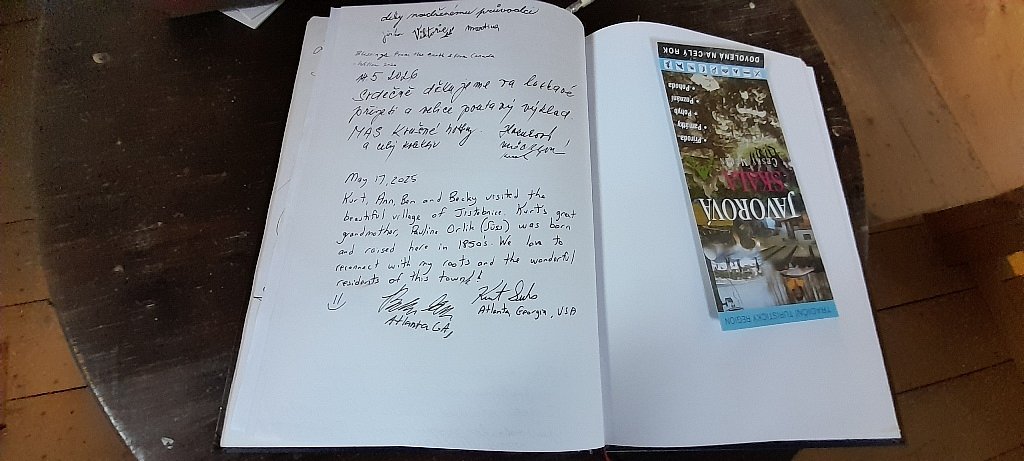 díky nadšenému průvodci
Viktorie Martina
Blessings from the earth
#5 2026
Srdečně děkujeme za laskavé
přijetí a velice poutavý výklad
MAS Krajina
a celý
May 17, 2025
Kurt, Ann, Ben and Becky visited the
beautiful village of Jistebnice. Kurt's great
grandmother, Pauline Orlik (Süss) was born
and raised here in 1850's. We love to
reconnect with my roots and the wonderful
residents of this town!
Kurt
Atlanta Georgia, USA
Atlanta GA,
DOVOLENÁ NA CELÝ ROK
• Pohoda
• Poznání
• Pohyb
• Památky
• Příroda
JAVOROVÁ
SKÁLA
TRADIČNÍ TURISTICKÝ REGION